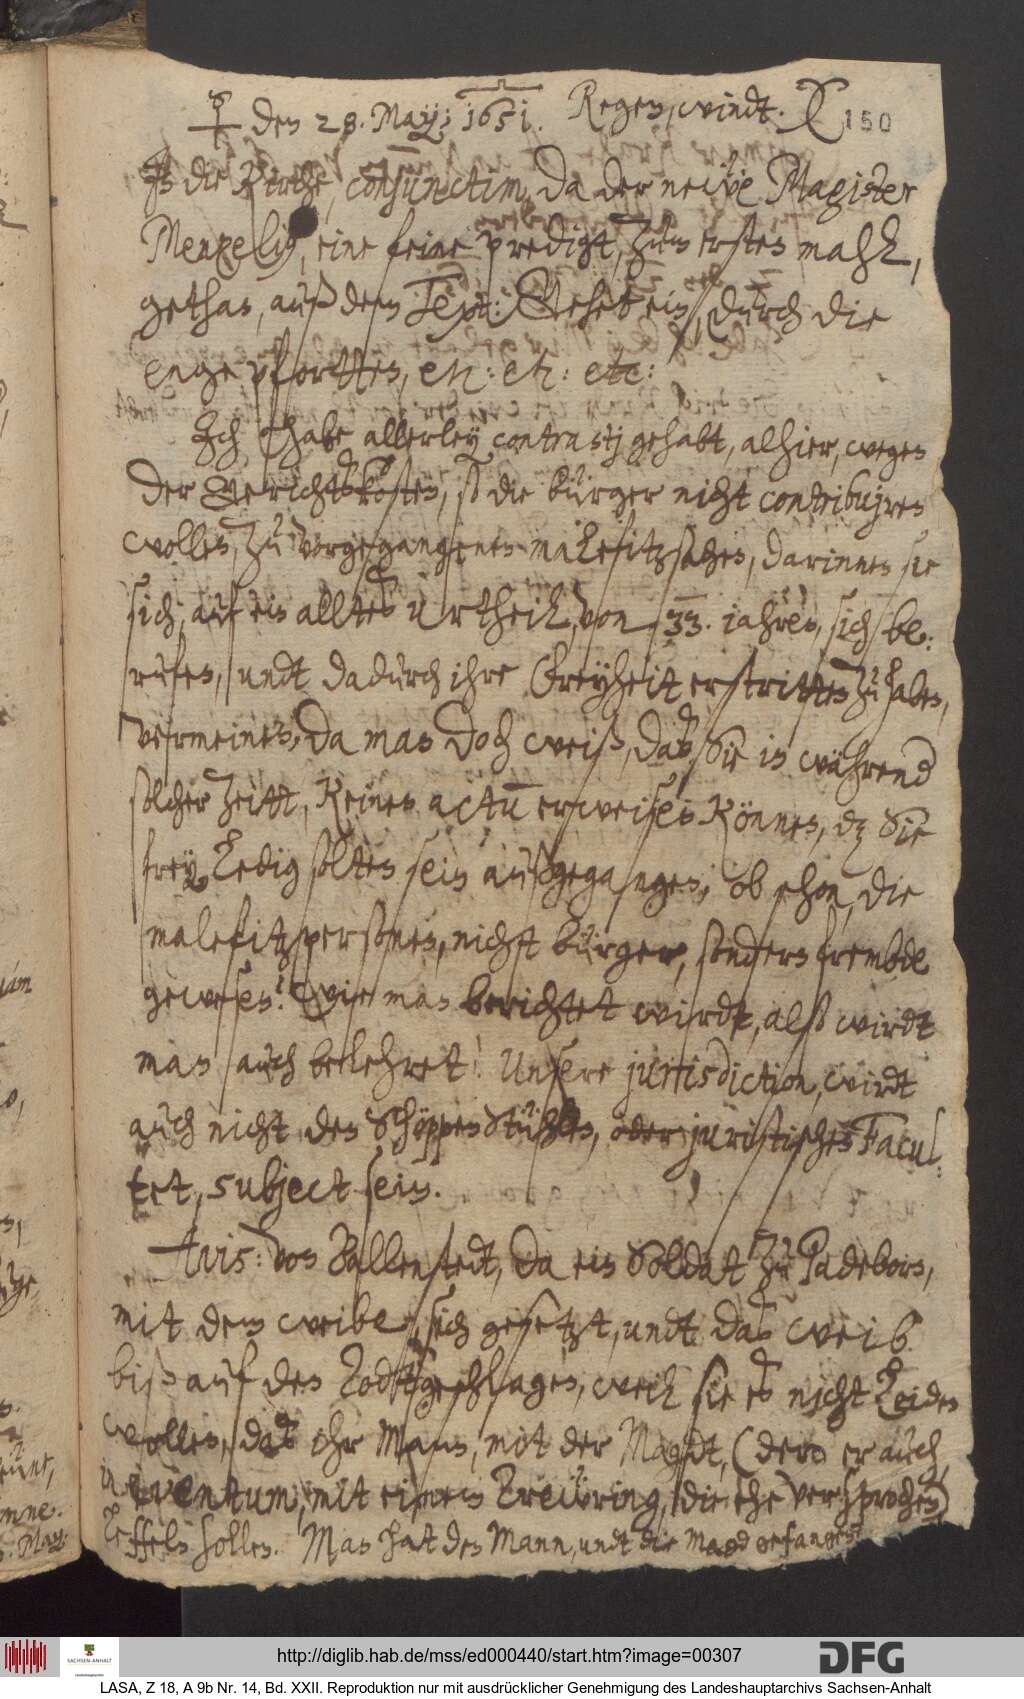 ☿ den 28. May: 1651. Regen, windt. X 150
In die Kirche, conjunctim, da der newe Magister
Menzelius, eine feine predigt, zum ersten mahl,
gethan, auß dem Text: Gehet ein, durch die
enge pfortten, etc: etc: etc:
Ich habe allerley contrastj gehabt, alhier, wegen
der Gerichtskosten, so die bürger nicht contribujren
wollen, zu vorgegangenen malefitzsachen, darinnen sie
sich, auf ein alltes Urtheil, von 33. jahren, sich be:
rufen, undt dadurch ihre Freyheit erstritten zu haben,
vermeinen, da man doch weiß, daß Sie in während
solcher zeitt, Keinen actum erweisen Können, dz Sie
frey, Ledig solten sein außgegangen, ob schon, die
malefitzpersonen, nicht bürger, sondern frembde
gewesen. Wie man berichtet wirdt, alß wirdt
man auch belehret! Unsere jurisdiction, wirdt
auch nicht den Schöppen Stühlen, oder juristischen Facul:
tet, subject sein.
Avis: von Ballenstedt, da ein Soldat zu Padeborn,
mit dem weibe, sich gesetzt, undt das weib
biß auf den Todt geschlagen, weil sie es nicht Leiden
wollen, daß ihr Mann, mit der Magdt, (dero er auch
in eventum, mit einem Trewring, die ehe versprochen)
Leffeln sollen. Man hat den Mann, undt die Magd gefangen
http://diglib.hab.de/mss/ed000440/start.htm?image=00307
SACHSEN-ANHALT
DFG
LASA, Z 18, A 9b Nr. 14, Bd. XXII. Reproduktion nur mit ausdrücklicher Genehmigung des Landeshauptarchivs Sachsen-Anhalt